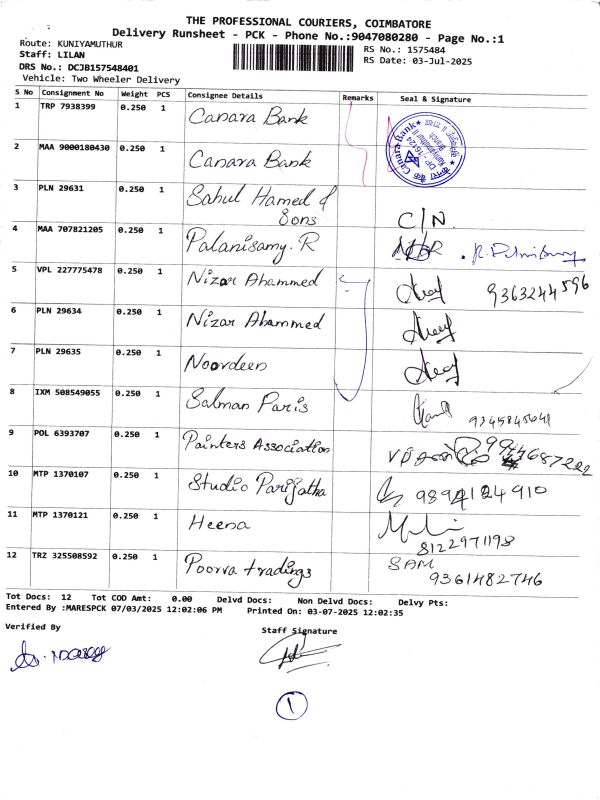 THE PROFESSIONAL COURIERS, COIMBATORE
Delivery Runsheet - PCK - Phone No.:9047080280 - Page No.:1
Route: KUNIYAMUTHUR
RS No.: 1575484
Staff: LILAN
RS Date: 03-Jul-2025
DRS No.: DCJB157548401
Vehicle: Two Wheeler Delivery
S No Consignment No Weight PCS Consignee Details Remarks Seal & Signature
1 TRP 7938399 0.250 1 Canara Bank
2 MAA 9000180430 0.250 1 Canara Bank
Canara Bank
DP - 16124
Branch
3 PLN 29631 0.250 1 Sahul Hamed &
Sons C/N.
4 MAA 707821205 0.250 1 Palanisamy. R
5 VPL 227775478 0.250 1 Nizar Ahammed 9363244596
6 PLN 29634 0.250 1 Nizar Ahammed
7 PLN 29635 0.250 1 Noordeen
8 IXM 508549055 0.250 1 Salman Paris
9 POL 6393707 0.250 1 Painters Association
10 MTP 1370107 0.250 1 Studio Parijatha
11 MTP 1370121 0.250 1 Heena
8122971198
12 TRZ 325508592 0.250 1 Poorva tradings SAM
9361482746
Tot Docs: 12 Tot COD Amt: 0.00 Delvd Docs: Non Delvd Docs: Delvy Pts:
Entered By :MARESPCK 07/03/2025 12:02:06 PM Printed On: 03-07-2025 12:02:35
Verified By
Staff Signature
1